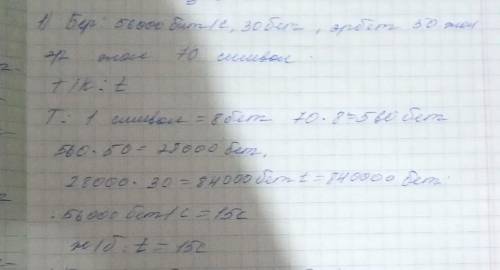 1) Бер: 56000 бит/с, 30 бет, әр бет 50 жол
әр жол 70 символ.
Т/к: t
Т: 1 символ = 8 бит 70·8=560 бит
560·50=28000 бит,
28000·30=84000 бит t=840000 бит:
56000 бит/с=15с
ж/б: t=15с